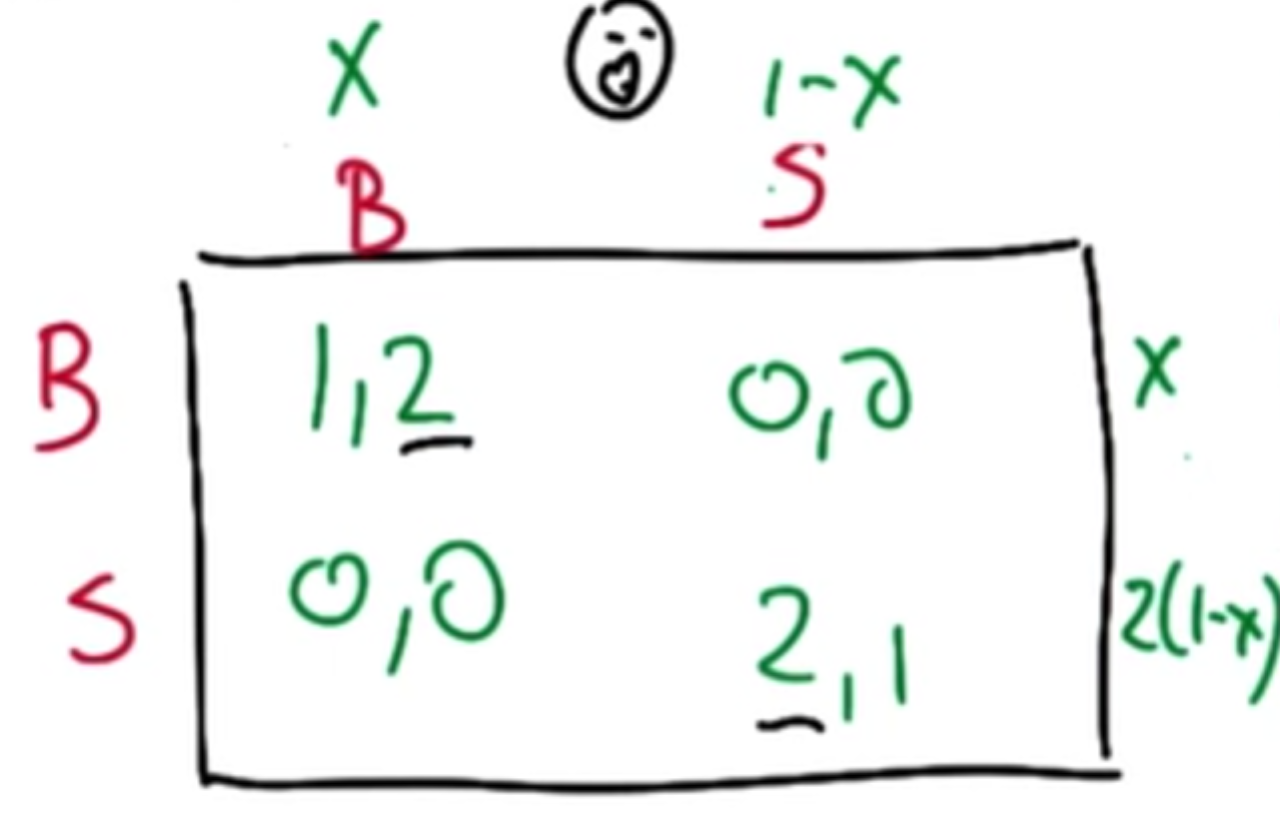 X 1-X
B S
B 1,2 0,0 X
S 0,0 2,1 2(1-x)